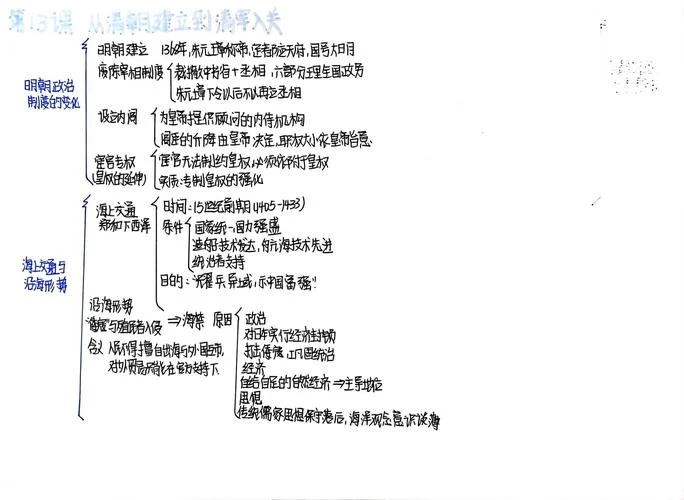 第13课 从清朝建立到清军入关
明朝建立 1368年,朱元璋称帝,定都应天府,国号大明
废除宰相制度
裁撤中书省+丞相,六部分理全国政务
朱元璋下令以后不以再立丞相
明朝政治
制度的变化
设立内阁
为皇帝提供顾问的内侍机构
阁臣的升降由皇帝决定,职权大小依皇帝旨意
宦官专权
(皇权的延伸)
宦官无法制约皇权,必须依附于皇权
实质:专制皇权的强化
海上交通
郑和下西洋
时间:15世纪前期(1405-1433)
条件
国家统一,国力强盛
造船技术发达,航海技术先进
统治者支持
目的:"耀兵异域,示中国富强"
海上交通与
沿海形势
沿海形势
与殖民者入侵 ⇒海禁 原因
含义 人民不得擅自出海与外国互市,
对外贸易只能在官方支持下
政治
对日本实行经济封锁
打击倭寇,巩固统治
经济
自给自足的自然经济⇒主导地位
思想
传统儒家思想保守落后,海洋观念意识淡薄